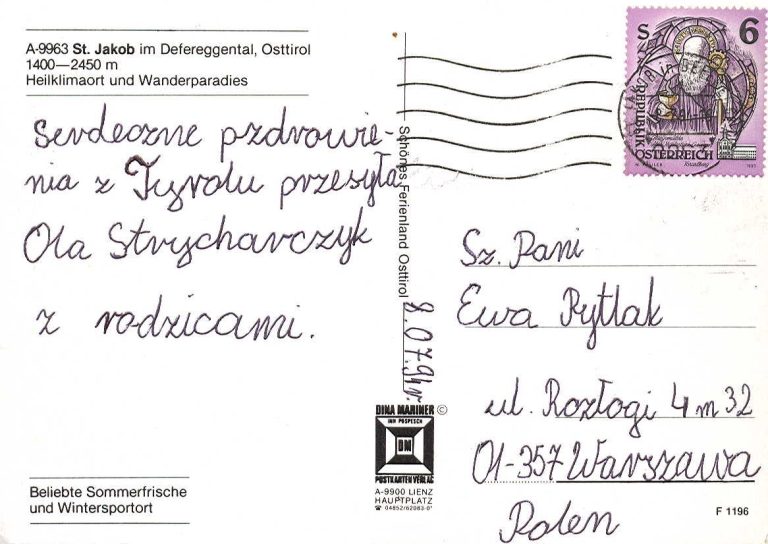 A-9963 St. Jakob im Defereggental, Osttirol
1400—2450 m
Heilklimaort und Wanderparadies
serdeczne pzdrowie-
nia z Tyrolu przesyła
Ola Strycharczyk
z rodzicami.
Beliebte Sommerfrische
und Wintersportort
Schönes Ferienland Osttirol
8.07.94r.
DINA MARINER ©
DM
POSTKARTEN VERLAG
A-9900 LIENZ
HAUPTPLATZ
S 6
REPUBLIK
ÖSTERREICH
Sz. Pani
Ewa Rytlak
ul. Rozłogi 4 m 32
01-357 Warszawa
Polen
F 1196